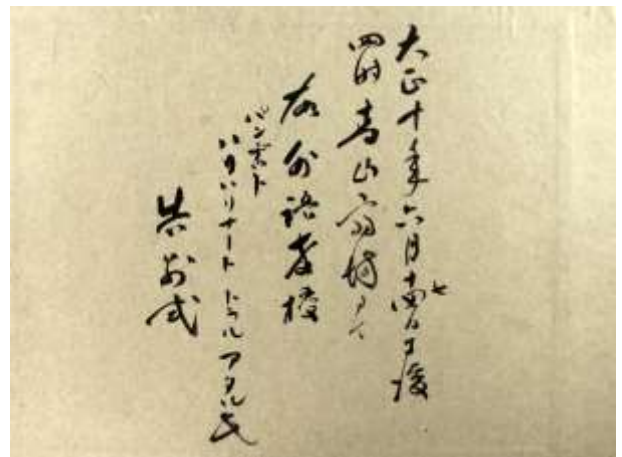 大正十年六月十七日午後
四時青山斎場ニテ
故外語教授
ハリハリナート トラル アタル氏
告別式